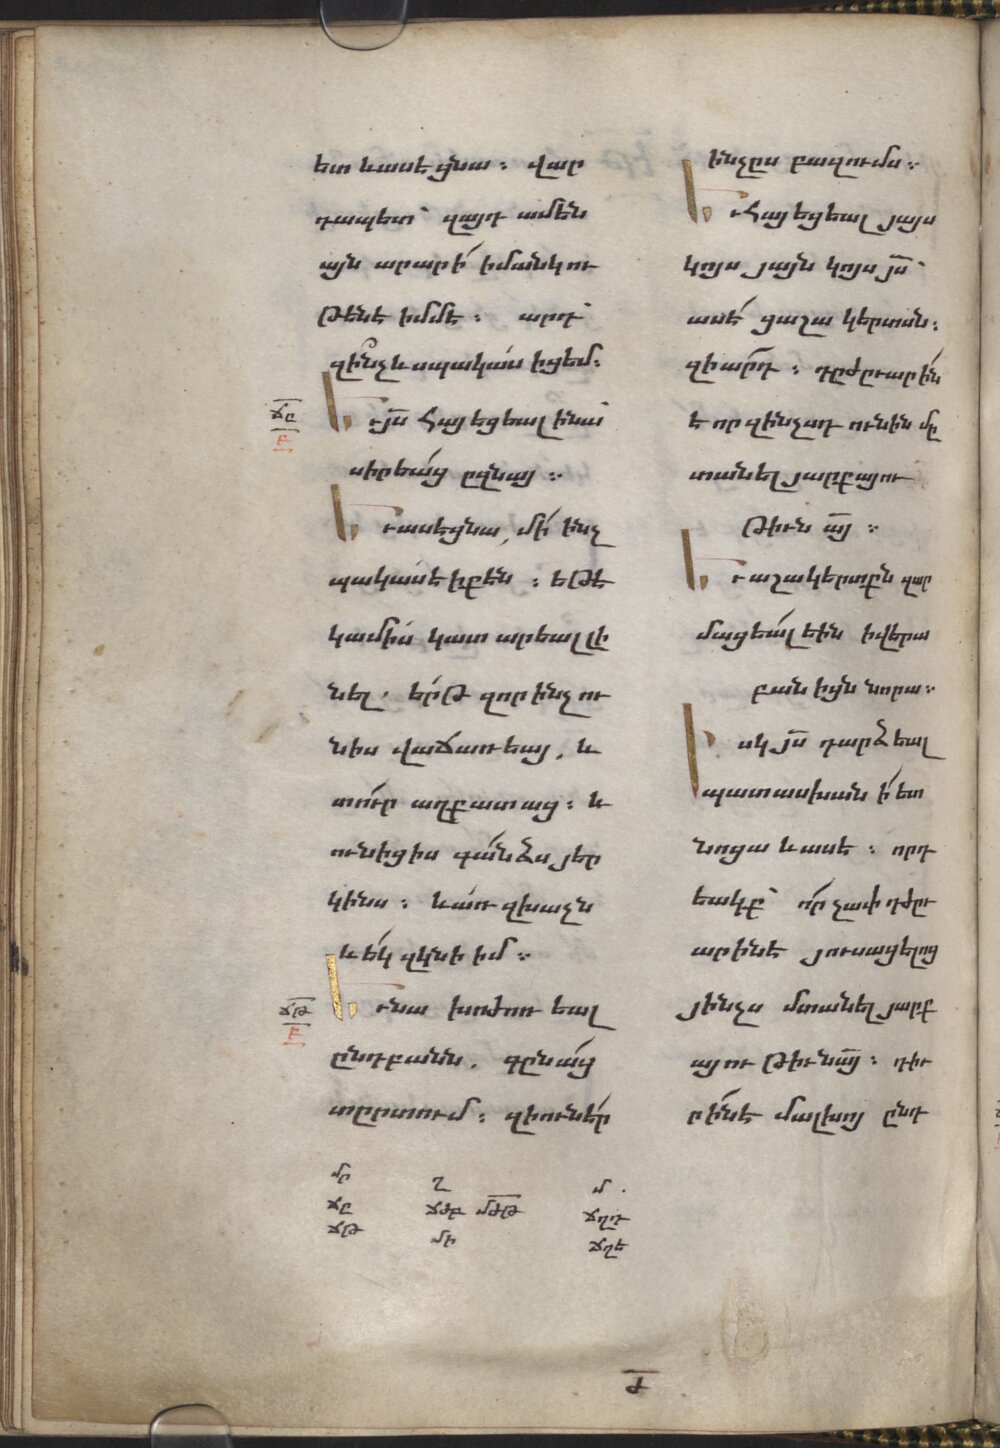 ետ և ասէ ցնա։ վար
դապետ՝ զայդ ամեն
այն արարի՛ ի մանկու
թենէ իմմէ։ արդ՝
զի՞նչ ևս պակա՛ս իցեմ։
ճը
Եւ յս հայեցեալ ի նա՝
սիրեա՛ց ըզնա յ։
Եւ ասէ ցնա, մի՛ ինչ
պակաս է ի քէն։ եթէ
կամի՛ս կատարեալ լի
նել. ե՛րթ զոր ինչ ու
նիս վաճառեայ, և
տո՛ւր աղքատաց։ և
ունիցիս գա՛նձս յեր
կինս։ և ա՛ռ զխաչն
և ե՛կ զկնի իմ։
ճթ
Եւ նա խոժոռեալ
ընդ բանն, գընա՛ց
տըրտում։ զի ունե՛ր
ինչըս բազումս։
Եւ հայեցեալ յայս
կոյս յայն կոյս յս՝
ասէ՛ ցաշակերտսն։
զիա՛րդ։ դըժըւարի՛ն
է որ զինչսդ ունին մը
տանել յարքայու
թիւն այ։
Եւ աշակերտքն զար
մացեա՛լ էին ի վերա
բանիցն նորա։
Իսկ յս դարձեալ
պատասխանի՛ ետ
նոցա և ասէ։ որդ
եակք՝ ո՛ր չափ դժըւ
արին է յուսացելոց
յինչս մտանել յարք
այութիւն այ։ դիւ
րի՛ն է մալխոյ ընդ
մը
ճը
ճթ
Ղ
ճժբ մժթ
մի
մ.
ճղդ
ճղե
Ժ